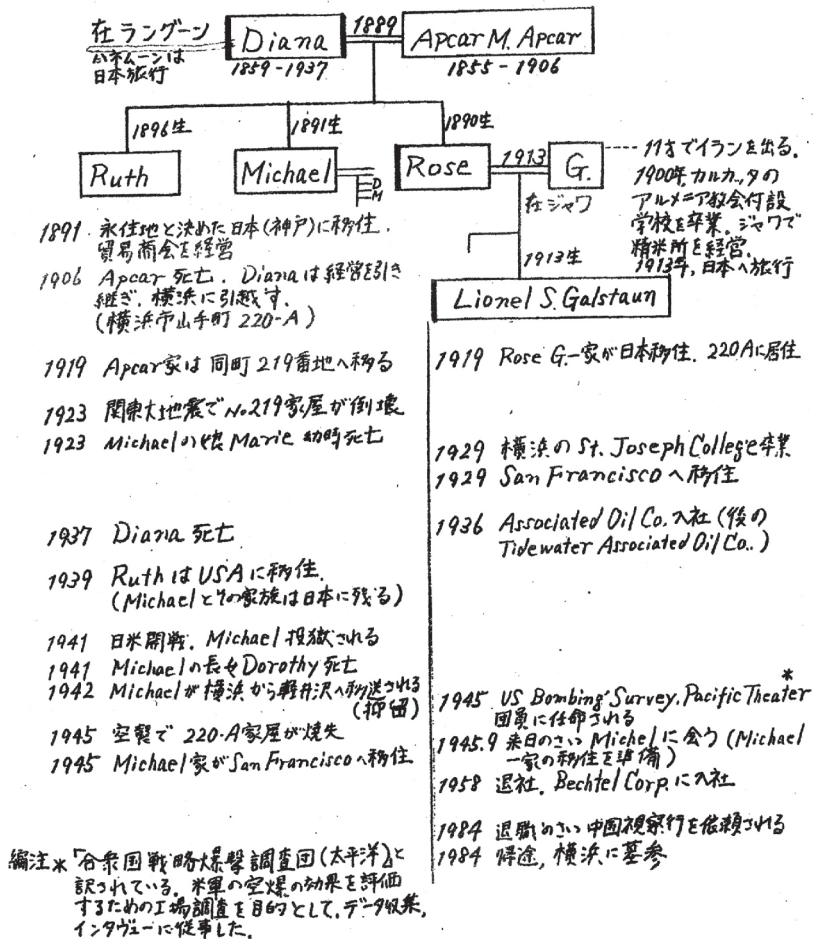 在ラングーン
ハネムーンは
日本旅行
Diana
1859-1937
1889
Apcar M. Apcar
1855-1906
1896生
1891生
1890生
Ruth
Michael
D
M
Rose
1913
G.
在ジャワ
11才でイランを出る.
1900年, カルカッタの
アルメニア教会付設
学校を卒業. ジャワで
精米所を経営.
1913年, 日本へ旅行
1913生
Lionel S. Galstaun
1891 永住地と決めた日本(神戸)に移住.
貿易商会を経営
1906 Apcar 死亡. Dianaは経営を引き
継ぎ, 横浜に引越す.
(横浜市山手町 220-A)
1919 Apcar家は同町219番地へ移る
1923 関東大地震でNo.219家屋が倒壊
1923 Michaelの娘Marie 幼時死亡
1937 Diana 死亡
1939 RuthはUSAに移住.
(Michaelとその家族は日本に残る)
1941 日米開戦. Michael 投獄される
1941 Michaelの長女Dorothy 死亡
1942 Michaelが横浜から軽井沢へ移送される
(抑留)
1945 空襲で 220-A家屋が焼失
1945 Michael家がSan Franciscoへ移住
1919 Rose G.一家が日本移住. 220Aに居住
1929 横浜のSt. Joseph College卒業
1929 San Franciscoへ移住
1936 Associated Oil Co. 入社(後の
Tidewater Associated Oil Co..)
*
1945 US Bombing Survey, Pacific Theater
団員に任命される
1945.9 来日のさい Michelに会う(Michael
一家の移住を準備)
1958 退社. Bechtel Corp.に入社
1984 退職のさい中国視察行を依頼される
1984 帰途, 横浜に墓参
編注*「合衆国戦略爆撃調査団(太平洋)」と
訳されている. 米軍の空爆の効果を評価
するための工場調査を目的として, データ収集,
インタヴューに従事した.